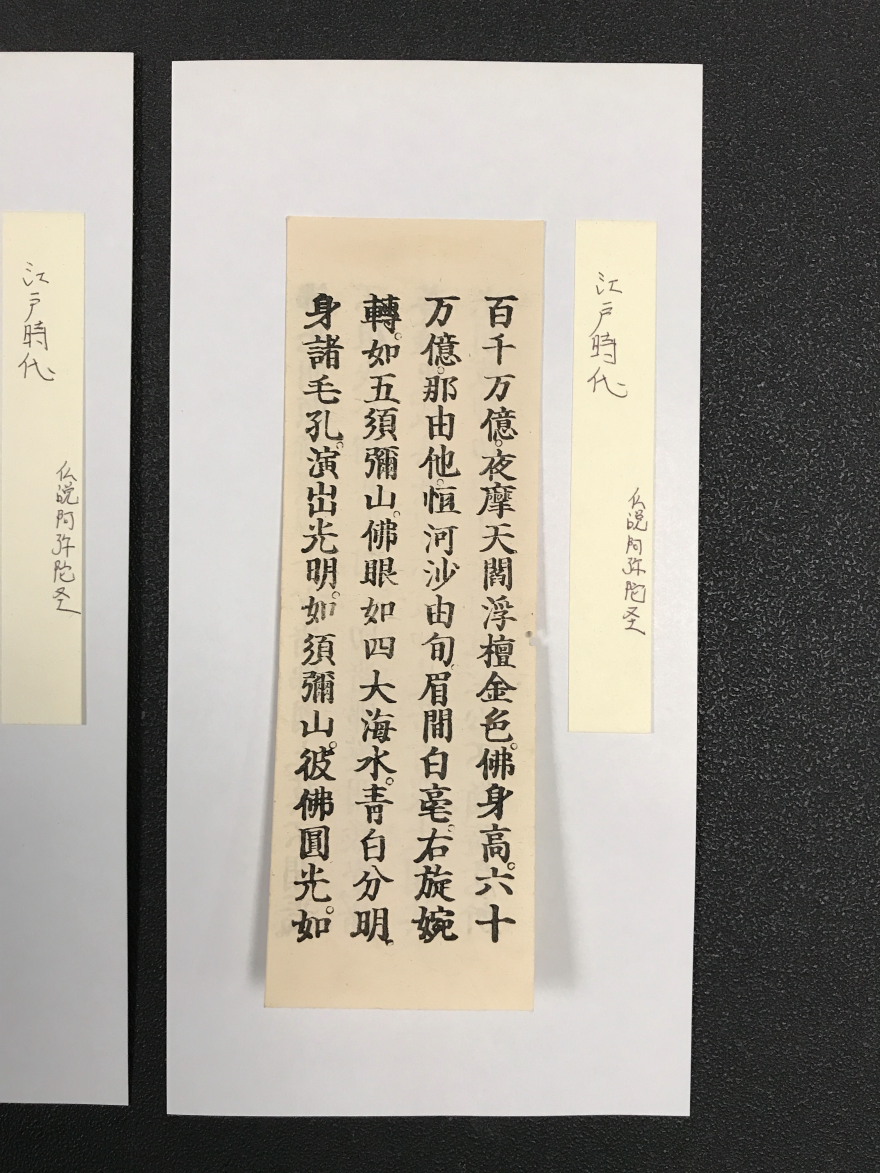 江戸時代
仏説阿弥陀圣
百千万億。夜摩天閻浮檀金色。佛身高。六十
万億。那由他。恒河沙由旬。眉間白毫。右旋婉
轉。如五須彌山。佛眼如四大海水。青白分明。
身諸毛孔。演出光明。如須彌山。彼佛圓光。如
江戸時代
仏説阿弥陀圣